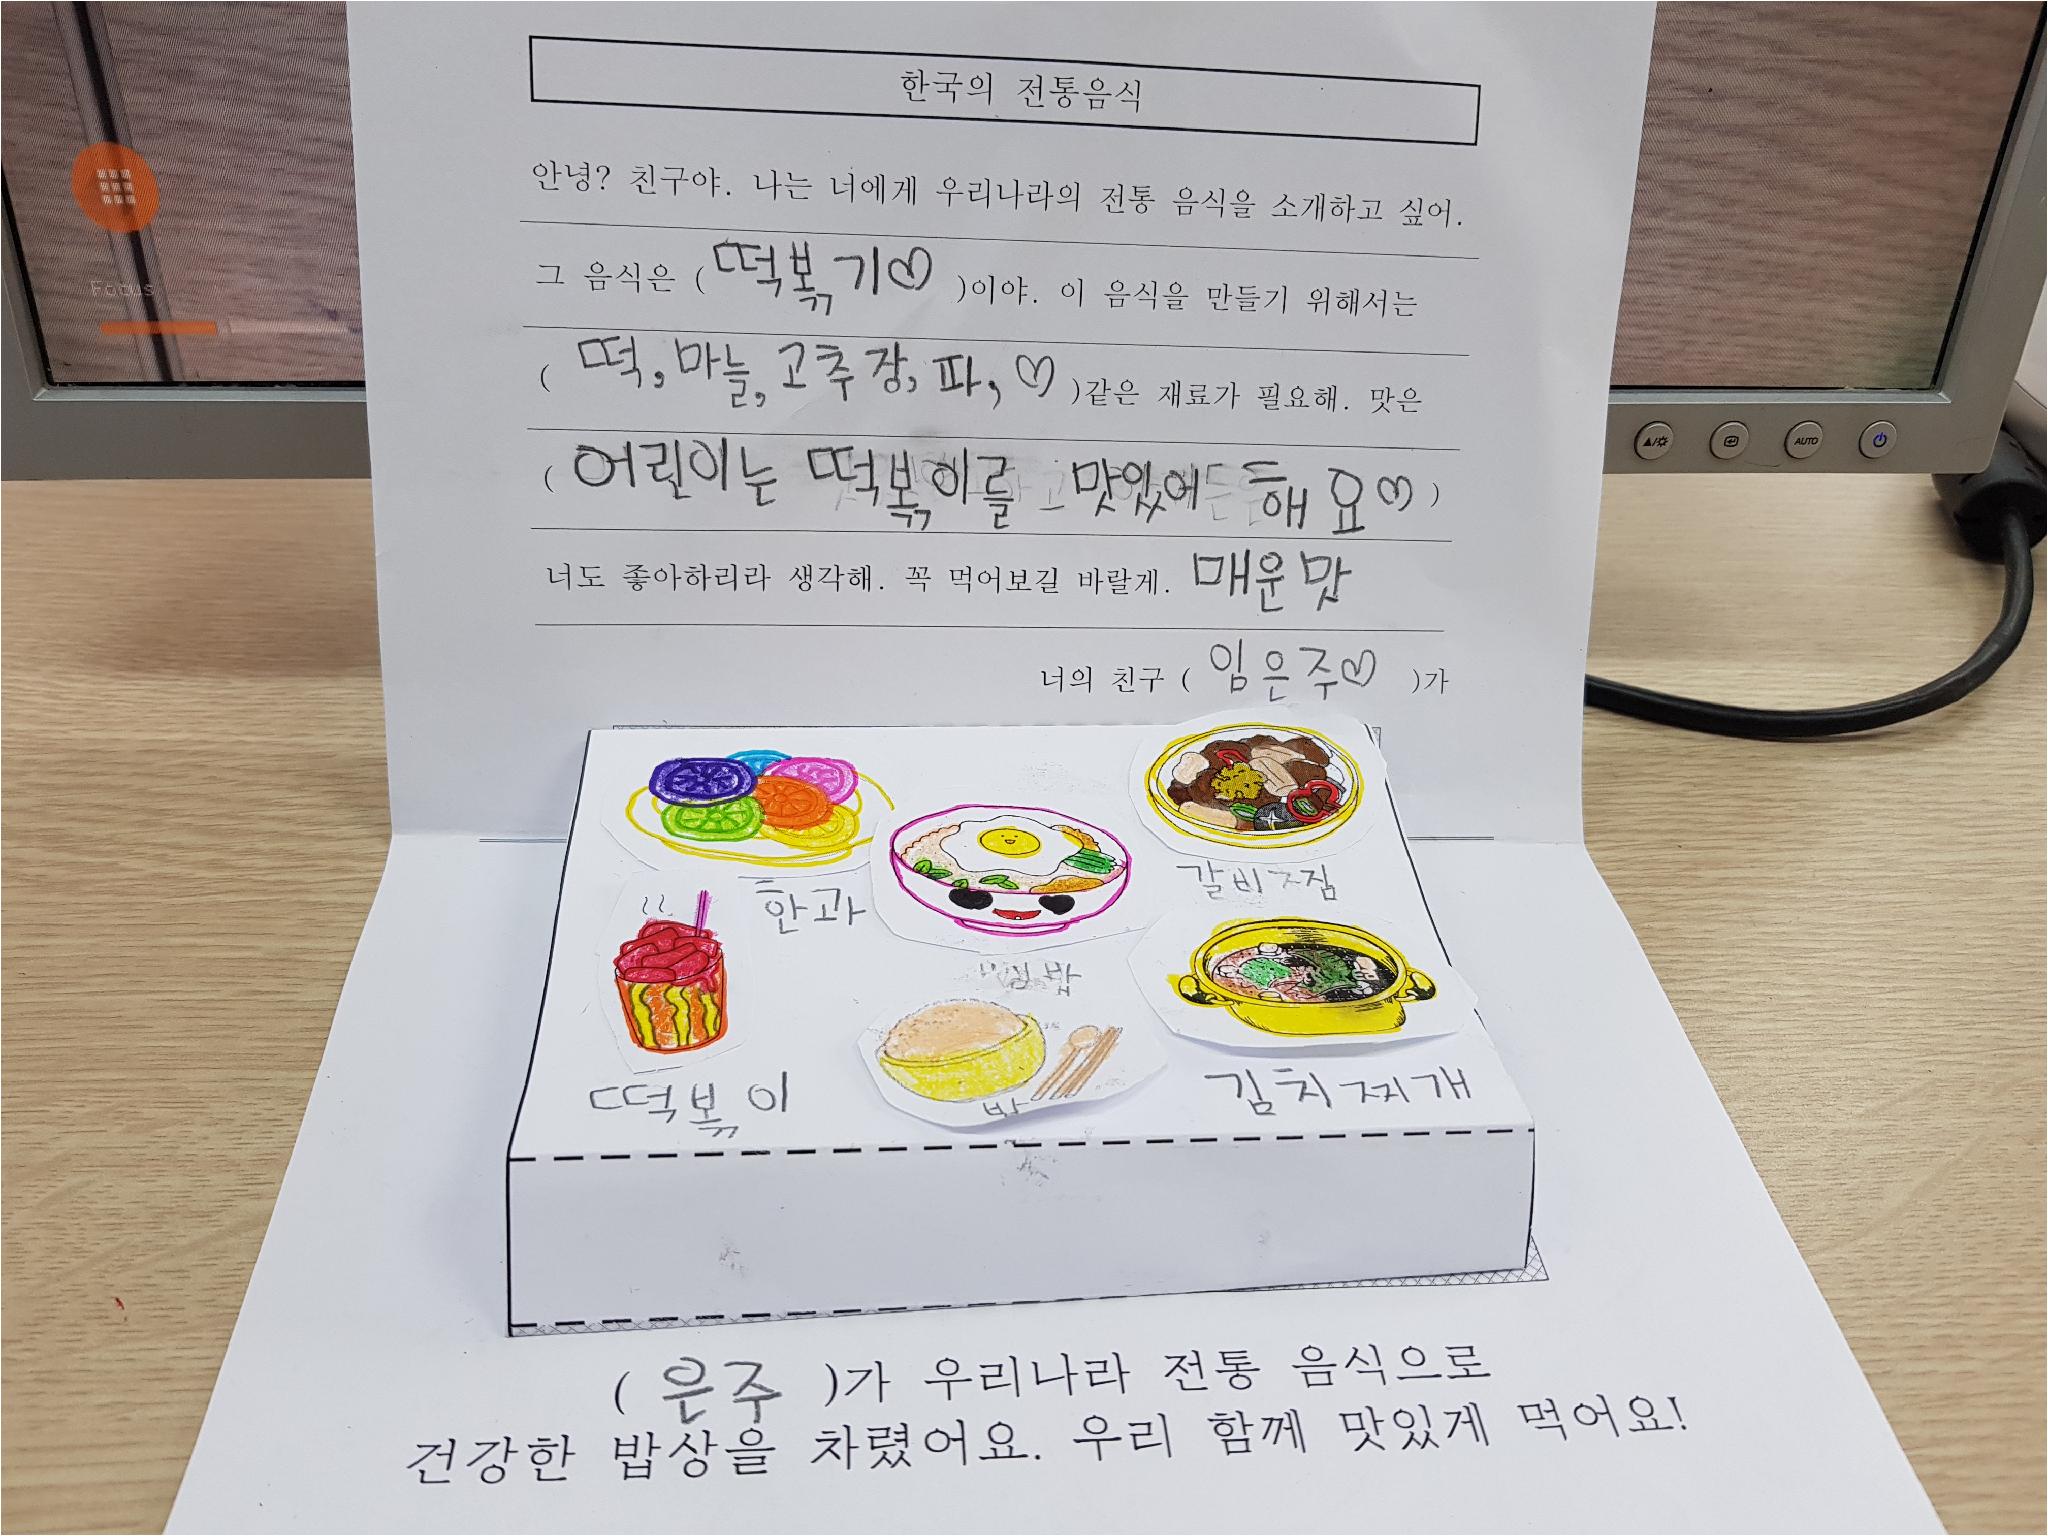 Focus
한국의 전통음식
안녕? 친구야. 나는 너에게 우리나라의 전통 음식을 소개하고 싶어.
그 음식은 (떡볶기♡)이야. 이 음식을 만들기 위해서는
(떡, 마늘, 고추장, 파, ♡)같은 재료가 필요해. 맛은
(어린이는 떡볶이를 맛있에 해요♡)
너도 좋아하리라 생각해. 꼭 먹어보길 바랄게. 매운맛
너의 친구 (임은주♡)가
AUTO
한과
갈비찜
비빔밥
떡볶이
밥
김치찌개
(은주)가 우리나라 전통 음식으로
건강한 밥상을 차렸어요. 우리 함께 맛있게 먹어요!